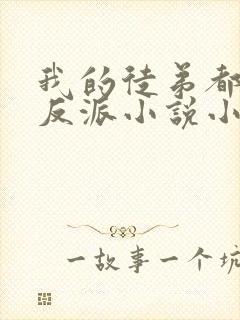 我的徒弟都
反派小說小
一故事一个坑